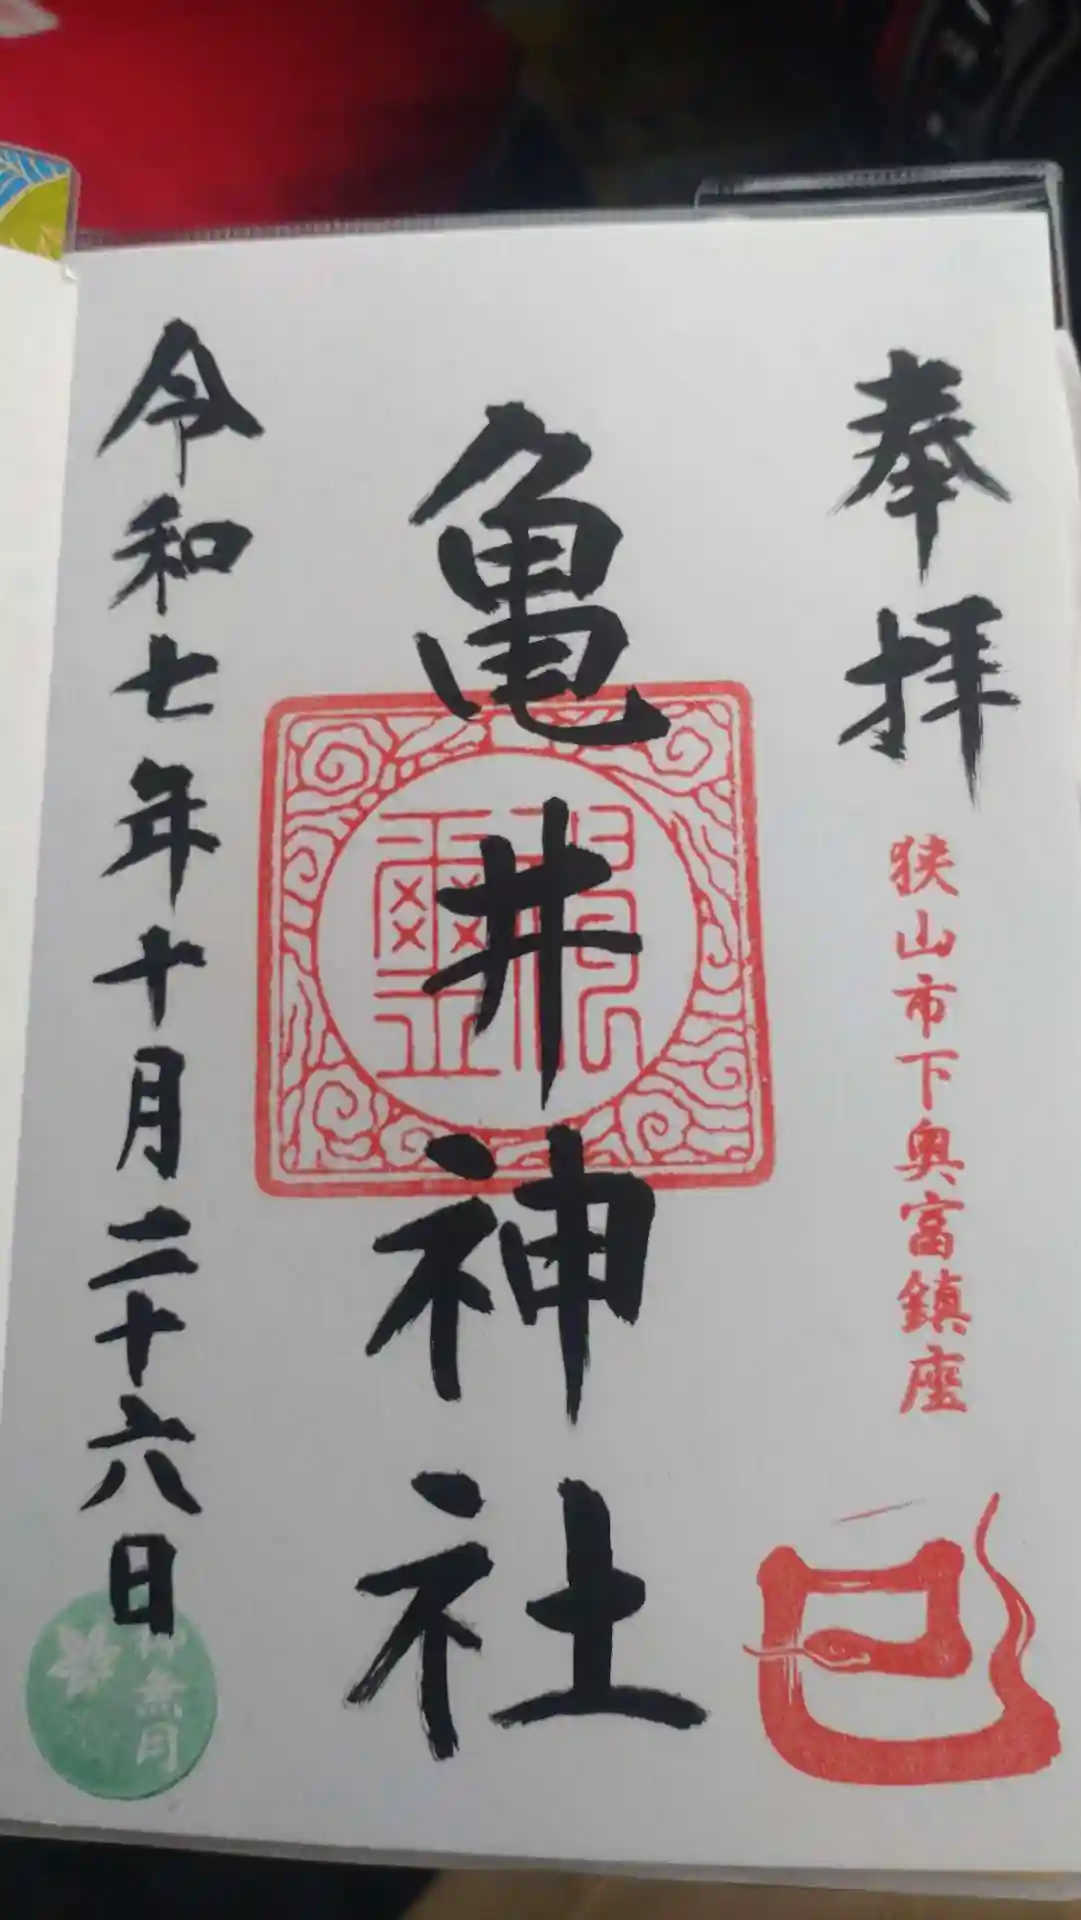 奉拝
狭山市下奥富鎮座
巳
亀井神社
令和七年十月二十六日
神無月